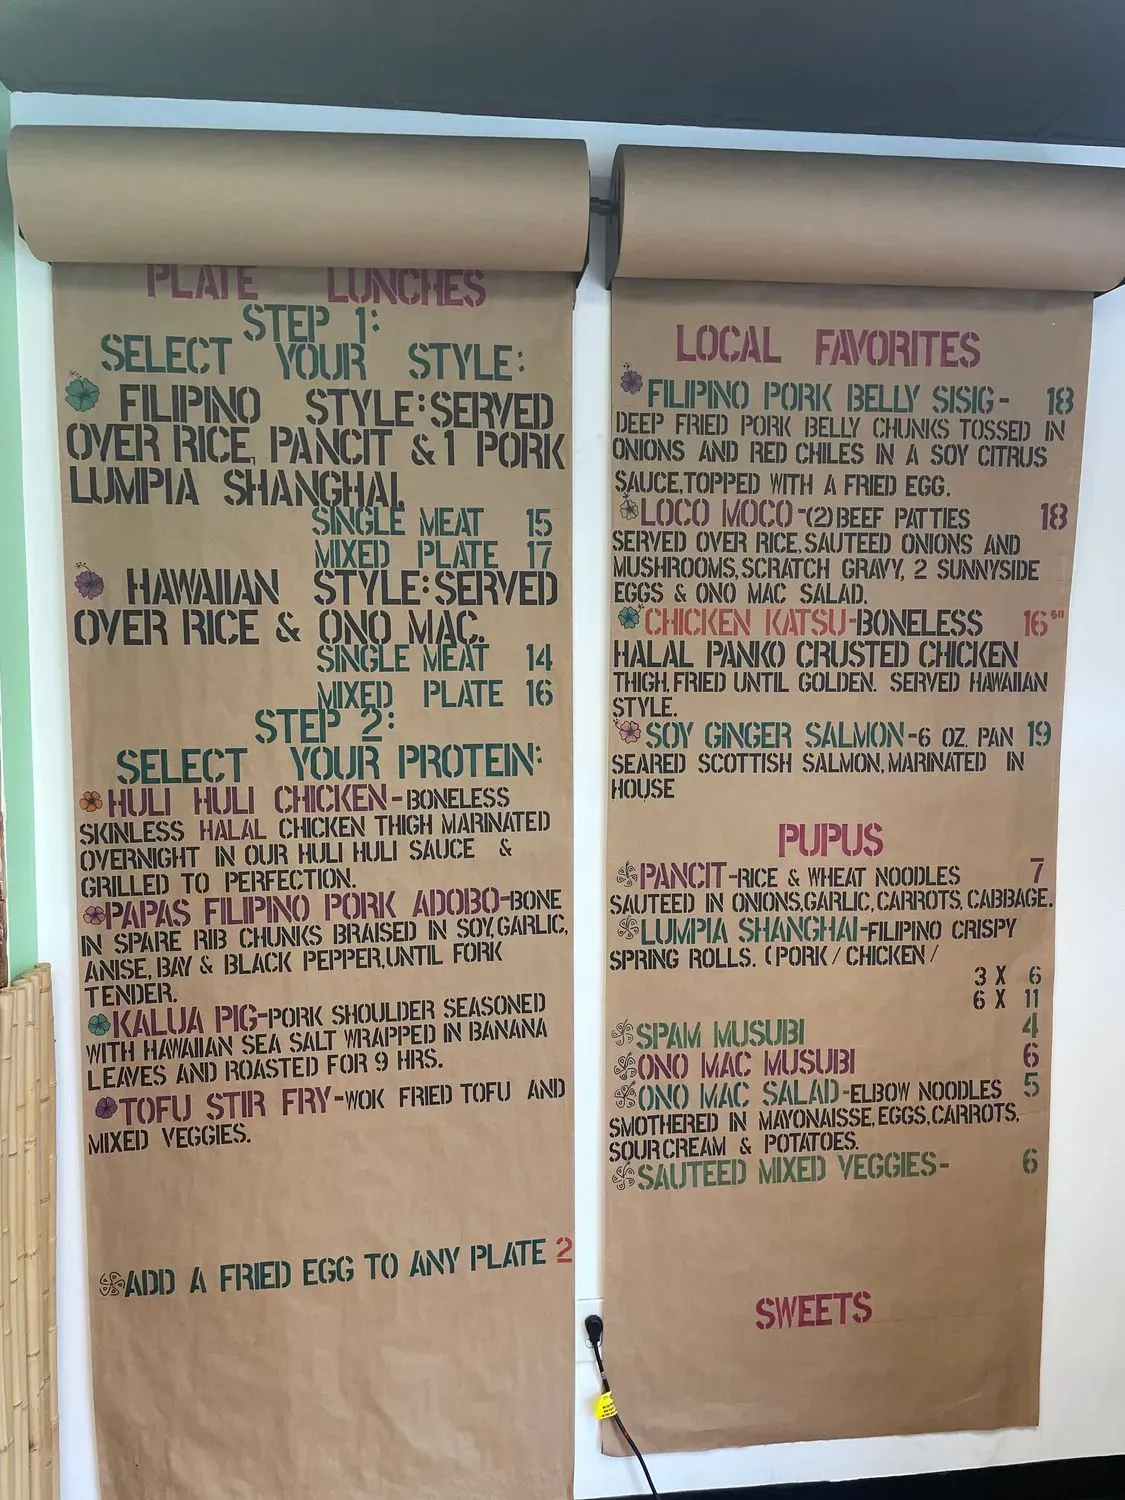 PLATE LUNCHES
STEP 1:
SELECT YOUR STYLE:
FILIPINO STYLE:SERVED
OVER RICE, PANCIT & 1 PORK
LUMPIA SHANGHAI.
SINGLE MEAT 15
MIXED PLATE 17
HAWAIIAN STYLE:SERVED
OVER RICE & ONO MAC.
SINGLE MEAT 14
MIXED PLATE 16
STEP 2:
SELECT YOUR PROTEIN:
HULI HULI CHICKEN-BONELESS
SKINLESS HALAL CHICKEN THIGH MARINATED
OVERNIGHT IN OUR HULI HULI SAUCE &
GRILLED TO PERFECTION.
PAPAS FILIPINO PORK ADOBO-BONE
IN SPARE RIB CHUNKS BRAISED IN SOY,GARLIC,
ANISE, BAY & BLACK PEPPER,UNTIL FORK
TENDER.
KALUA PIG-PORK SHOULDER SEASONED
WITH HAWAIIAN SEA SALT WRAPPED IN BANANA
LEAVES AND ROASTED FOR 9 HRS.
TOFU STIR FRY-WOK FRIED TOFU AND
MIXED VEGGIES.
ADD A FRIED EGG TO ANY PLATE 2
LOCAL FAVORITES
FILIPINO PORK BELLY SISIG- 18
DEEP FRIED PORK BELLY CHUNKS TOSSED IN
ONIONS AND RED CHILES IN A SOY CITRUS
SAUCE,TOPPED WITH A FRIED EGG.
LOCO MOCO-(2)BEEF PATTIES 18
SERVED OVER RICE,SAUTEED ONIONS AND
MUSHROOMS,SCRATCH GRAVY, 2 SUNNYSIDE
EGGS & ONO MAC SALAD.
CHICKEN KATSU-BONELESS 16 50
HALAL PANKO CRUSTED CHICKEN
THIGH,FRIED UNTIL GOLDEN. SERVED HAWAIIAN
STYLE.
SOY GINGER SALMON-6 OZ. PAN 19
SEARED SCOTTISH SALMON,MARINATED IN
HOUSE
PUPUS
PANCIT-RICE & WHEAT NOODLES 7
SAUTEED IN ONIONS,GARLIC,CARROTS, CABBAGE.
LUMPIA SHANGHAI-FILIPINO CRISPY
SPRING ROLLS. (PORK / CHICKEN /
3 X 6
6 X 11
SPAM MUSUBI 4
ONO MAC MUSUBI 6
ONO MAC SALAD-ELBOW NOODLES 5
SMOTHERED IN MAYONAISSE,EGGS,CARROTS,
SOUR CREAM & POTATOES.
SAUTEED MIXED VEGGIES- 6
SWEETS